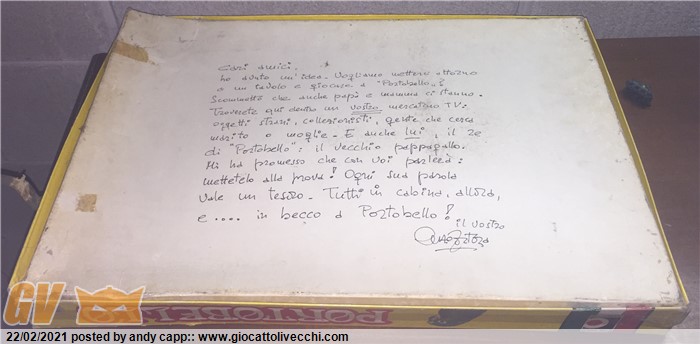 Cari amici,
ho avuto un'idea. Vogliamo metterci attorno
a un tavolo e giocare a "Portobello"?
Scommetto che anche papà e mamma ci stanno.
Troverete qui dentro un vostro mercatino TV:
oggetti strani, collezionisti, gente che cerca
marito o moglie. E anche lui, il re
di "Portobello": il vecchio pappagallo.
Mi ha promesso che con voi parlerà:
mettetelo alla prova! Ogni sua parola
vale un tesoro. Tutti in cabina, allora,
e .... in becco a Portobello!
il vostro
PORTOBEL
GV
22/02/2021 posted by andy capp:: www.giocattolivecchi.com